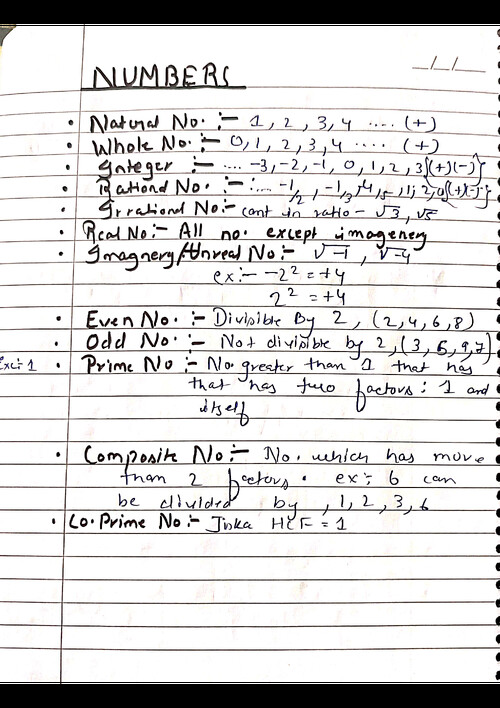 _/_/_
NUMBERS
• Natural No. :- 1, 2, 3, 4 .... (+)
• Whole No. :- 0, 1, 2, 3, 4 .... (+)
• Integer :- .... -3, -2, -1, 0, 1, 2, 3 {(+)(-)}
• Rational No. :- .... -1/2, -1/3, -4, 5, 1, 2, 0 {(+)(-)}
• Irrational No:- cant in ratio - √3, √5
• Real No:- All no. except imagenery
• Imagnery/Unreal No:- √-1, √-4
ex:- -2² = +4
2² = +4
• Even No. :- Divisible By 2, (2, 4, 6, 8)
• Odd No. :- Not divisible by 2, (3, 5, 9, 7)
Exc: 1 • Prime No :- No. greater than 1 that has
that has two factors: 1 and
itself
• Composite No:- No. which has more
than 2 factors. ex: 6 can
be divided by, 1, 2, 3, 6
• Co. Prime No:- Jinka HCF = 1